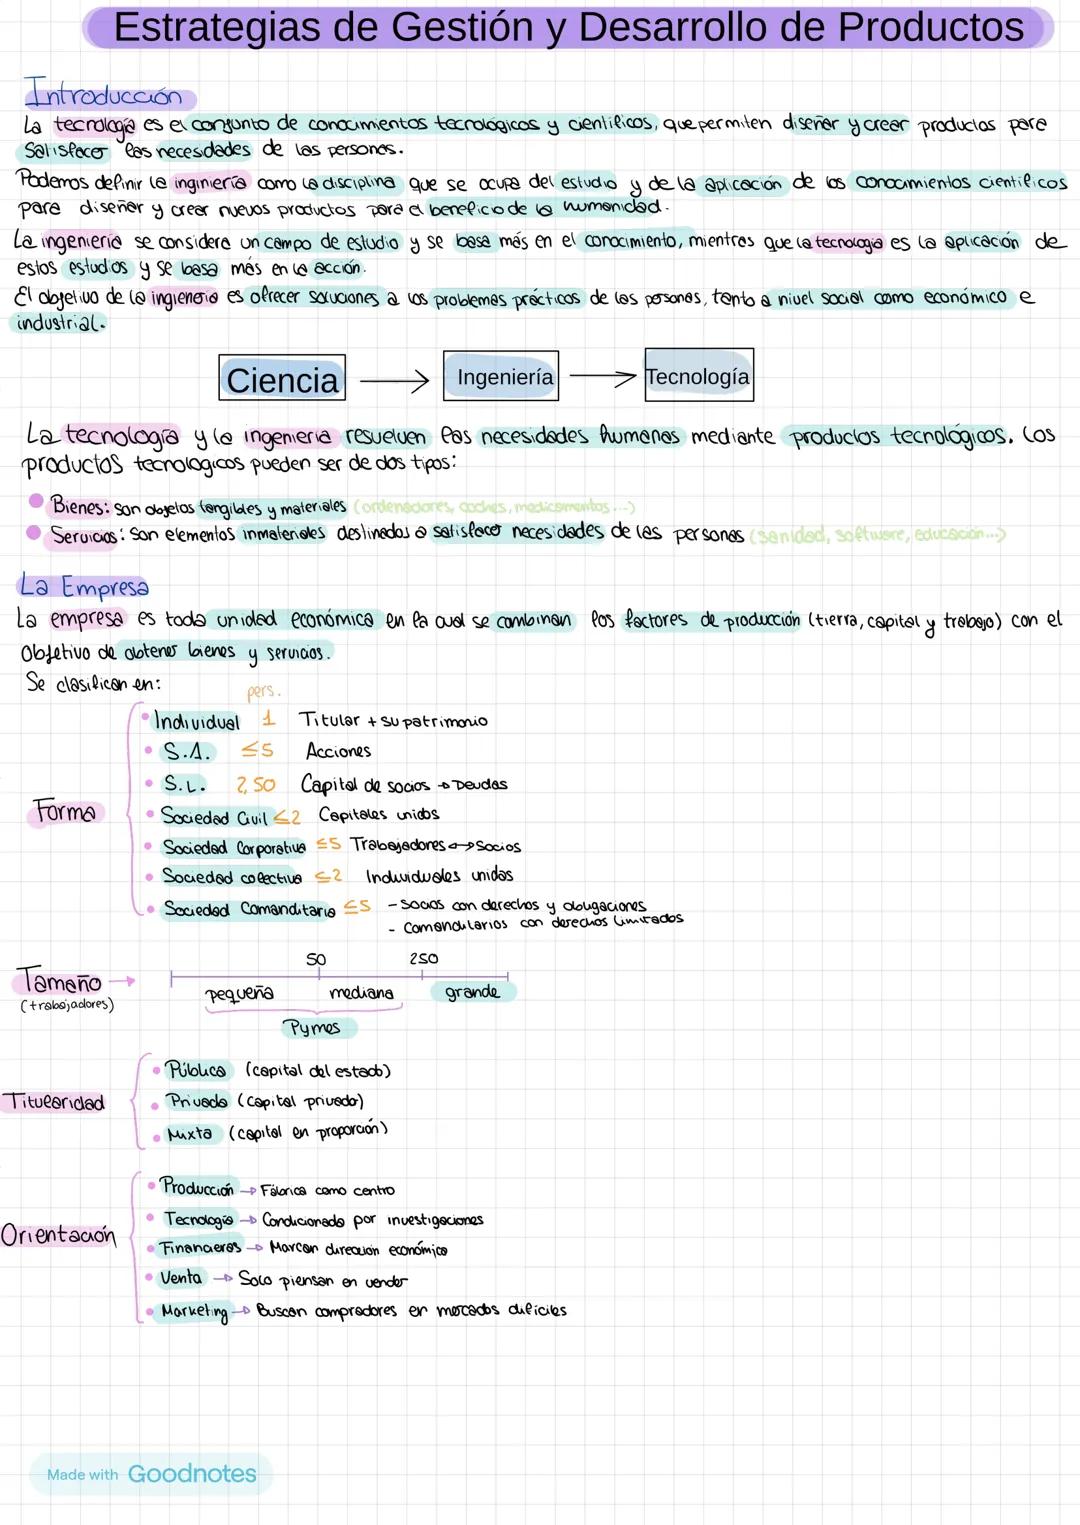 Estrategias de Gestión y Desarrollo de Productos
Introducción
La tecnología es el conjunto de conocimientos tecnológicos y científicos, que permiten diseñar y crear productos para
Satisfacer las necesidades de las personas.
Podemos definir la inginiería como la disciplina que se ocupa del estudio y de la aplicación de los conocimientos científicos
para diseñar y crear nuevos productos para el beneficio de la humanidad.
La ingeniería se considera un campo de estudio y se basa más en el conocimiento, mientras que la tecnología es la aplicación de
estos estudios y se basa más en la acción.
El objetivo de la ingieneria es ofrecer soluciones a los problemas prácticos de las personas, tanto a nivel social como económico e
industrial.
Ciencia → Ingeniería → Tecnología
La tecnología y la ingenieria resuelven las necesidades humanas mediante productos tecnológicos. Los
productos tecnologicos pueden ser de dos tipos:
Bienes: son objetos tangibles y materiales (ordenadores, coches, medicamentos...)
Servicios: son elementos inmateriales destinados a satisfacer necesidades de las personas (sanidad, software, educación...)
La Empresa
La empresa es toda unidad económica en la cual se combinan los factores de producción (tierra, capital y trabajo) con el
Objetivo de obtener bienes y servicios.
Se clasifican en:
pers.
Forma
Individual 1 Titular + su patrimonio
S.A. ≤5 Acciones
S.L. 2,50 Capital de socios → Deudas
Sociedad Civil ≤2 Capitales unidos
Sociedad Corporativa ≤5 Trabajadores ↔ Socios
Sociedad colectiva ≤2 Individuales unidos
Sociedad Comanditaria ≤5 - Socios con derechos y obligaciones
- Comanditarios con derechos limitados
Tamaño →
(trabajadores)
50 250
pequeña mediana grande
Pymes
Titularidad
Pública (capital del estado)
Privada (capital privado)
Mixta (capital en proporción)
Orientación
Producción → Fábrica como centro
Tecnología → Condicionada por investigaciones
Financieras → Marcan dirección económica
Venta → Solo piensan en vender
Marketing → Buscan compradores en mercados difíciles
Made with Goodnotes